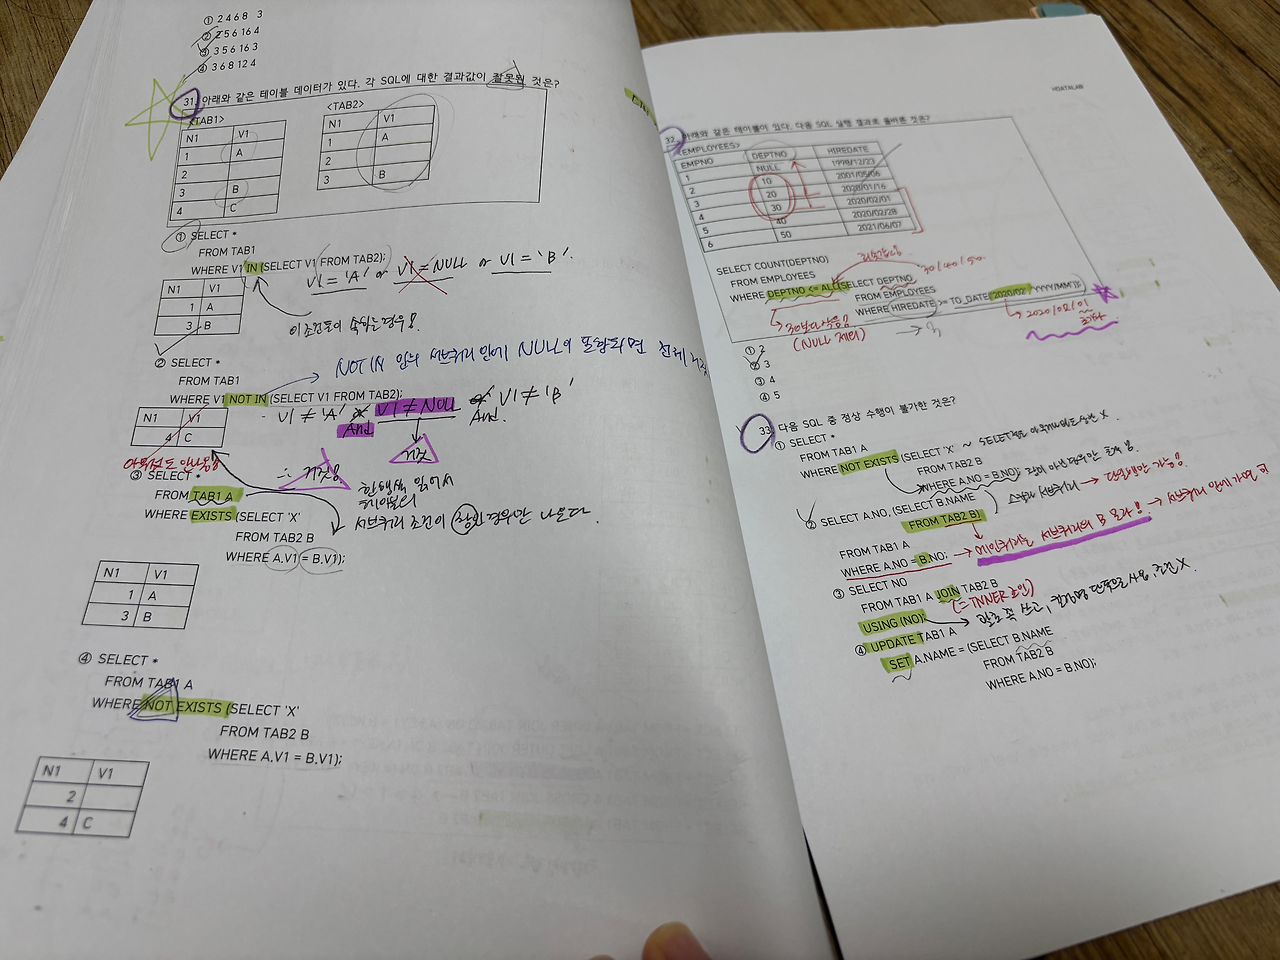 ① 2 4 6 8 3
② 2 5 6 16 4
③ 3 5 6 16 3
④ 3 6 8 12 4
31. 아래와 같은 테이블 데이터가 있다. 각 SQL에 대한 결과값이 잘못된 것은?
<TAB1>
N1 V1
1 A
2
3 B
4 C
<TAB2>
N1 V1
1 A
2
3 B
① SELECT *
FROM TAB1
WHERE V1 IN (SELECT V1 FROM TAB2);
V1 = 'A' or V1 = NULL or V1 = 'B'.
N1 V1
1 A
3 B
이 조건들이 속하는 경우!
② SELECT *
FROM TAB1
WHERE V1 NOT IN (SELECT V1 FROM TAB2);
NOT IN 안의 서브쿼리 안에 NULL이 포함되면 전체 거짓
V1 ≠ 'A' And V1 ≠ NULL And V1 ≠ 'B'
N1 V1
4 C
아무것도 안나옴!
∴ 거짓!
거짓
③ SELECT *
FROM TAB1 A
WHERE EXISTS (SELECT 'X'
FROM TAB2 B
WHERE A.V1 = B.V1);
한행씩 읽어서
테이블의
서브쿼리 조건이 참인 경우만 나온다.
N1 V1
1 A
3 B
④ SELECT *
FROM TAB1 A
WHERE NOT EXISTS (SELECT 'X'
FROM TAB2 B
WHERE A.V1 = B.V1);
N1 V1
2
4 C
HDATALAB
32. 아래와 같은 테이블이 있다. 다음 SQL 실행 결과로 올바른 것은?
<EMPLOYEES>
EMPNO DEPTNO HIREDATE
1 NULL 1998/12/23
2 10 2001/05/06
3 20 2020/01/16
4 30 2020/02/01
5 40 2020/02/28
6 50 2021/06/07
SELECT COUNT(DEPTNO)
FROM EMPLOYEES
WHERE DEPTNO <= ALL(SELECT DEPTNO
FROM EMPLOYEES
WHERE HIREDATE >= TO_DATE('2020/02','YYYY/MM'));
30/40/50.
30보다 작음!
(NULL 제외)
2020/02/01
① 2
② 3
③ 4
④ 5
33. 다음 SQL 중 정상 수행이 불가한 것은?
① SELECT *
FROM TAB1 A
WHERE NOT EXISTS (SELECT 'X'
FROM TAB2 B
WHERE A.NO = B.NO);
② SELECT A.NO, (SELECT B.NAME
FROM TAB2 B)
FROM TAB1 A
WHERE A.NO = B.NO;
스칼라 서브쿼리 → 단일행만 가능!
메인쿼리는 서브쿼리의 B 모름!
③ SELECT NO
FROM TAB1 A JOIN TAB2 B
USING (NO);
(= INNER 조인)
④ UPDATE TAB1 A
SET A.NAME = (SELECT B.NAME
FROM TAB2 B
WHERE A.NO = B.NO);